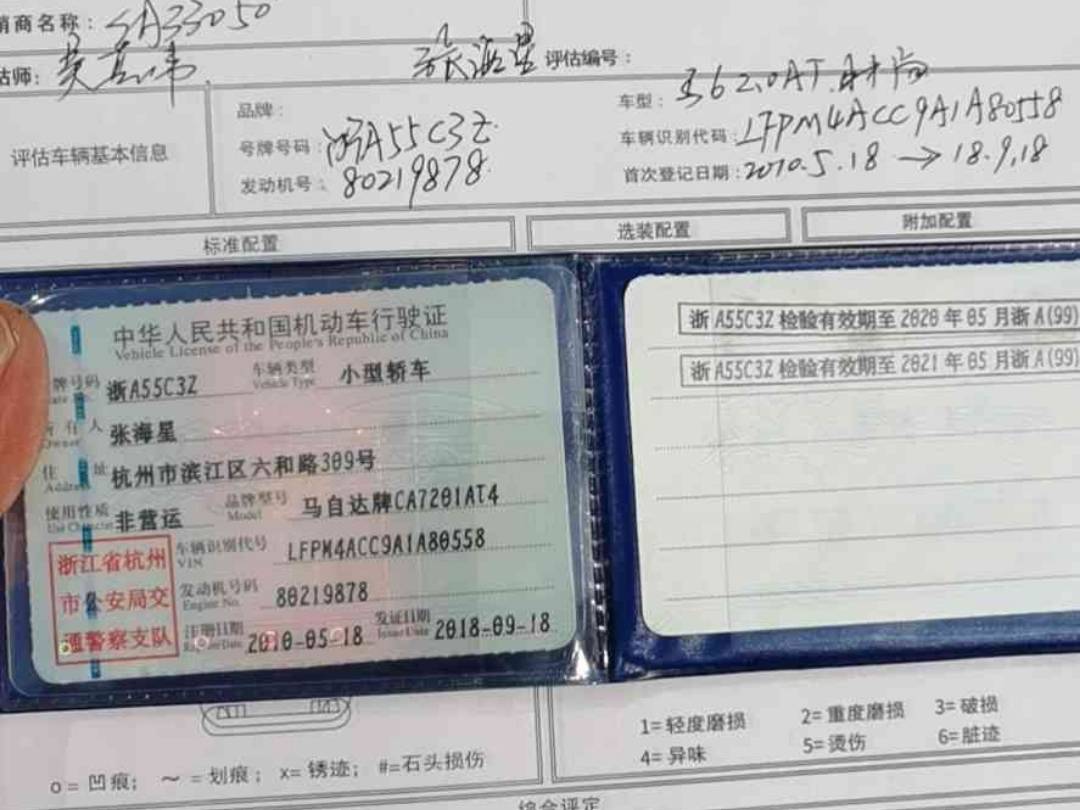 销商名称：SA33050
估师：
张海星 评估编号：
品牌：
车型：马6 2.0AT.时尚
评估车辆基本信息
号牌号码：浙A55C3Z
车辆识别代码：LFPM4ACC9A1A80558
发动机号：80219878
首次登记日期：2010.5.18 → 18.9.18
标准配置
选装配置
附加配置
中华人民共和国机动车行驶证
Vehicle License of the People's Republic of China
牌号码 浙A55C3Z 车辆类型 Vehicle Type 小型轿车
所有人 Owner 张海星
住址 Address 杭州市滨江区六和路309号
使用性质 Use Character 非营运 品牌型号 Model 马自达牌CA7201AT4
浙江省杭州
市公安局交
通警察支队
车辆识别代号 VIN LFPM4ACC9A1A80558
发动机号码 Engine No. 80219878
注册日期 Register Date 2010-05-18 发证日期 Issue Date 2018-09-18
浙A55C3Z检验有效期至2020年05月浙A(99)
浙A55C3Z检验有效期至2021年05月浙A(99)
o=凹痕； ～=划痕； x=锈迹； #=石头损伤
1=轻度磨损 2=重度磨损 3=破损
4=异味 5=烫伤 6=脏迹
综合评定